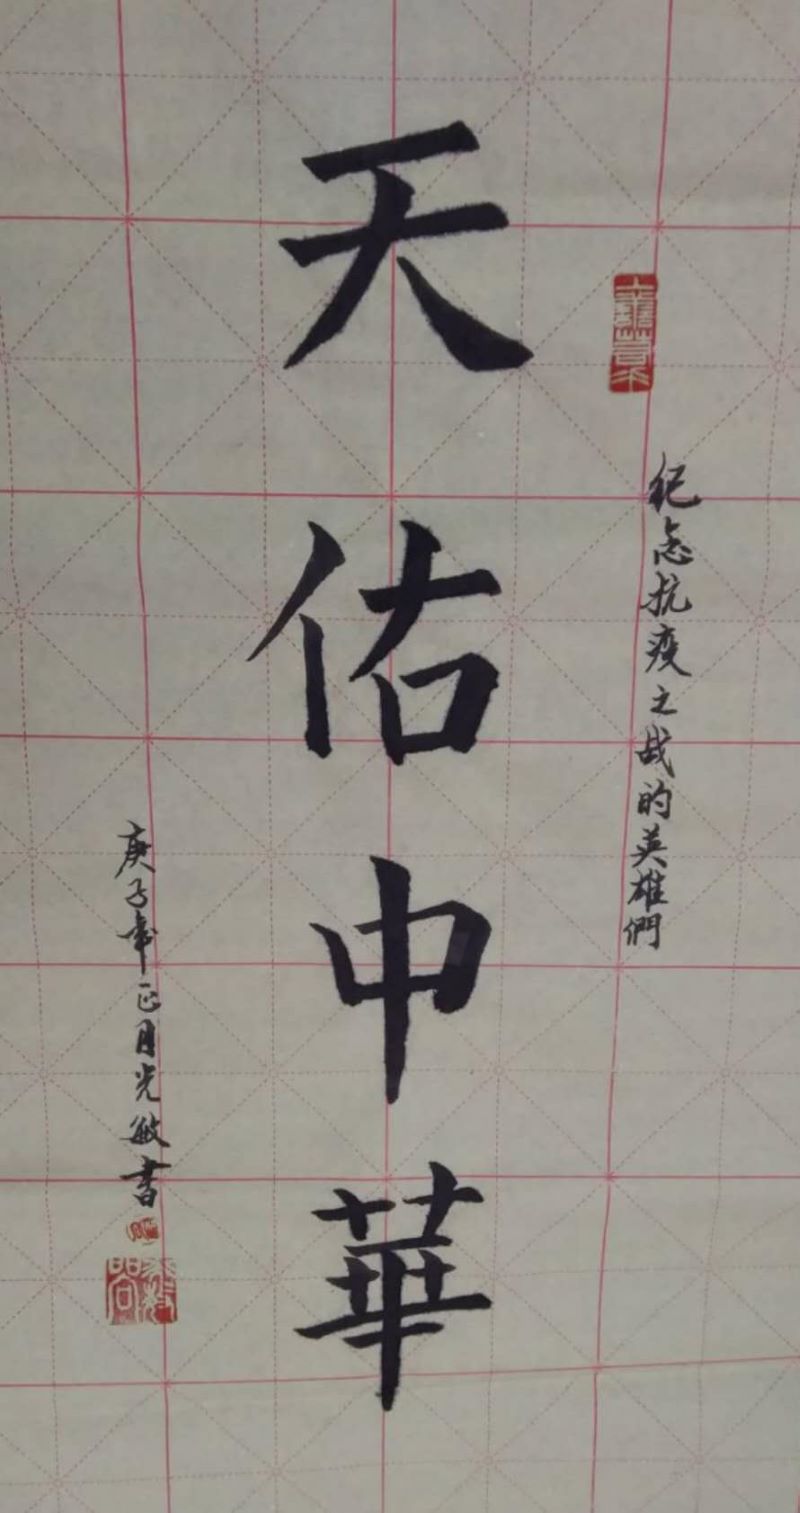 纪念抗疫之战的英雄們
天佑中華
庚子年正月光敏書